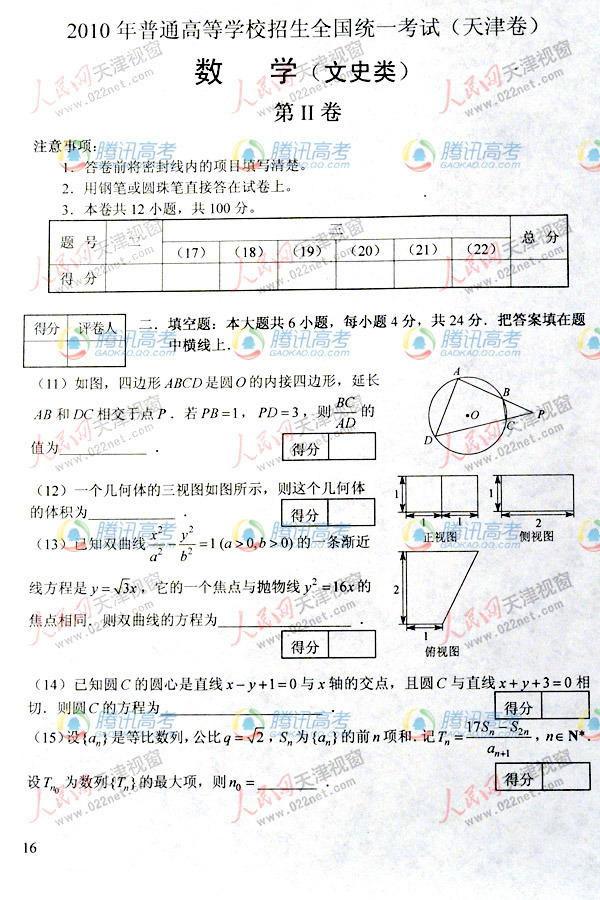 2010 年普通高等学校招生全国统一考试（天津卷）
数 学（文史类）
第 II 卷
注意事项：
1．答卷前将密封线内的项目填写清楚。
2．用钢笔或圆珠笔直接答在试卷上。
3．本卷共 12 小题，共 100 分。
题 号 二 三 总 分
（17） （18） （19） （20） （21） （22）
得 分
得分 评卷人
二．填空题：本大题共 6 小题，每小题 4 分，共 24 分．把答案填在题
中横线上．
（11）如图，四边形 ABCD 是圆 O 的内接四边形，延长
AB 和 DC 相交于点 P．若 PB=1，PD=3，则 BC/AD 的
值为____________．
得分
A
B
O
P
C
D
（12）一个几何体的三视图如图所示，则这个几何体
的体积为____________．
得分
1
1 1
正视图
1
2
侧视图
2
1
俯视图
（13）已知双曲线 x²/a² − y²/b² =1 (a>0,b>0) 的一条渐近
线方程是 y=√3x，它的一个焦点与抛物线 y²=16x 的
焦点相同．则双曲线的方程为__________________．
得分
（14）已知圆 C 的圆心是直线 x−y+1=0 与 x 轴的交点，且圆 C 与直线 x+y+3=0 相
切．则圆 C 的方程为__________________．
得分
（15）设{aₙ}是等比数列，公比 q=√2，Sₙ 为{aₙ}的前 n 项和．记 Tₙ = (17Sₙ − S₂ₙ)/aₙ₊₁，n∈N*．
设 Tₙ₀ 为数列{Tₙ}的最大项，则 n₀ = ________．
得分
16
人民网 天津视窗
www.022net.com
腾讯高考
GAOKAO.QQ.COM